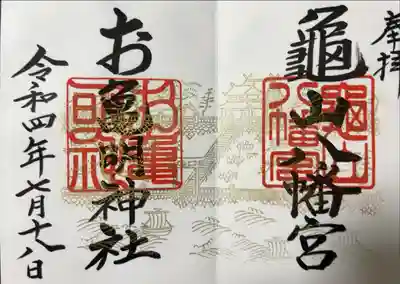 奉拝
龜山八幡宮
お亀明神社
令和四年七月十八日
龜山
八幡宮